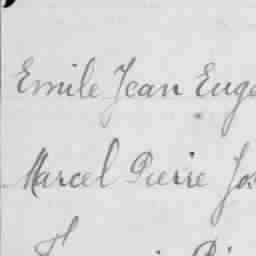 Emile Jean Euge
Marcel Pierre Jo